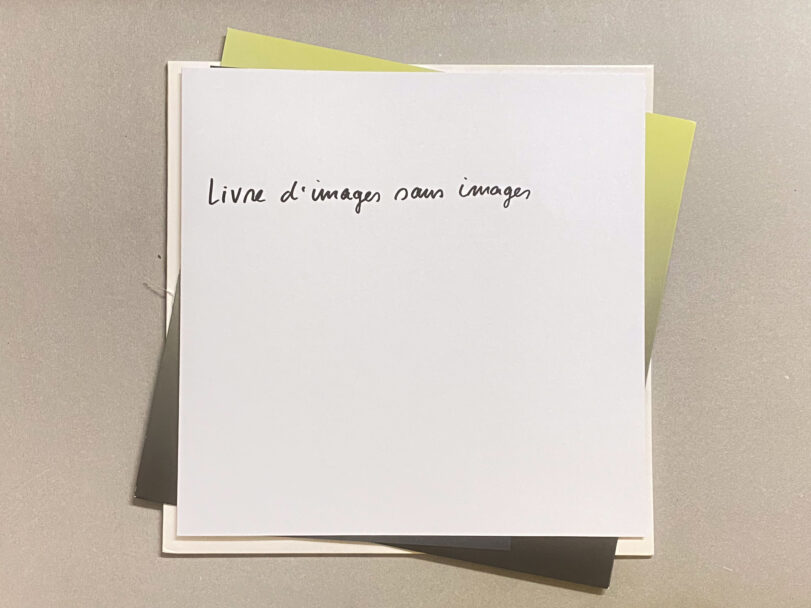 Livre d'images sans images